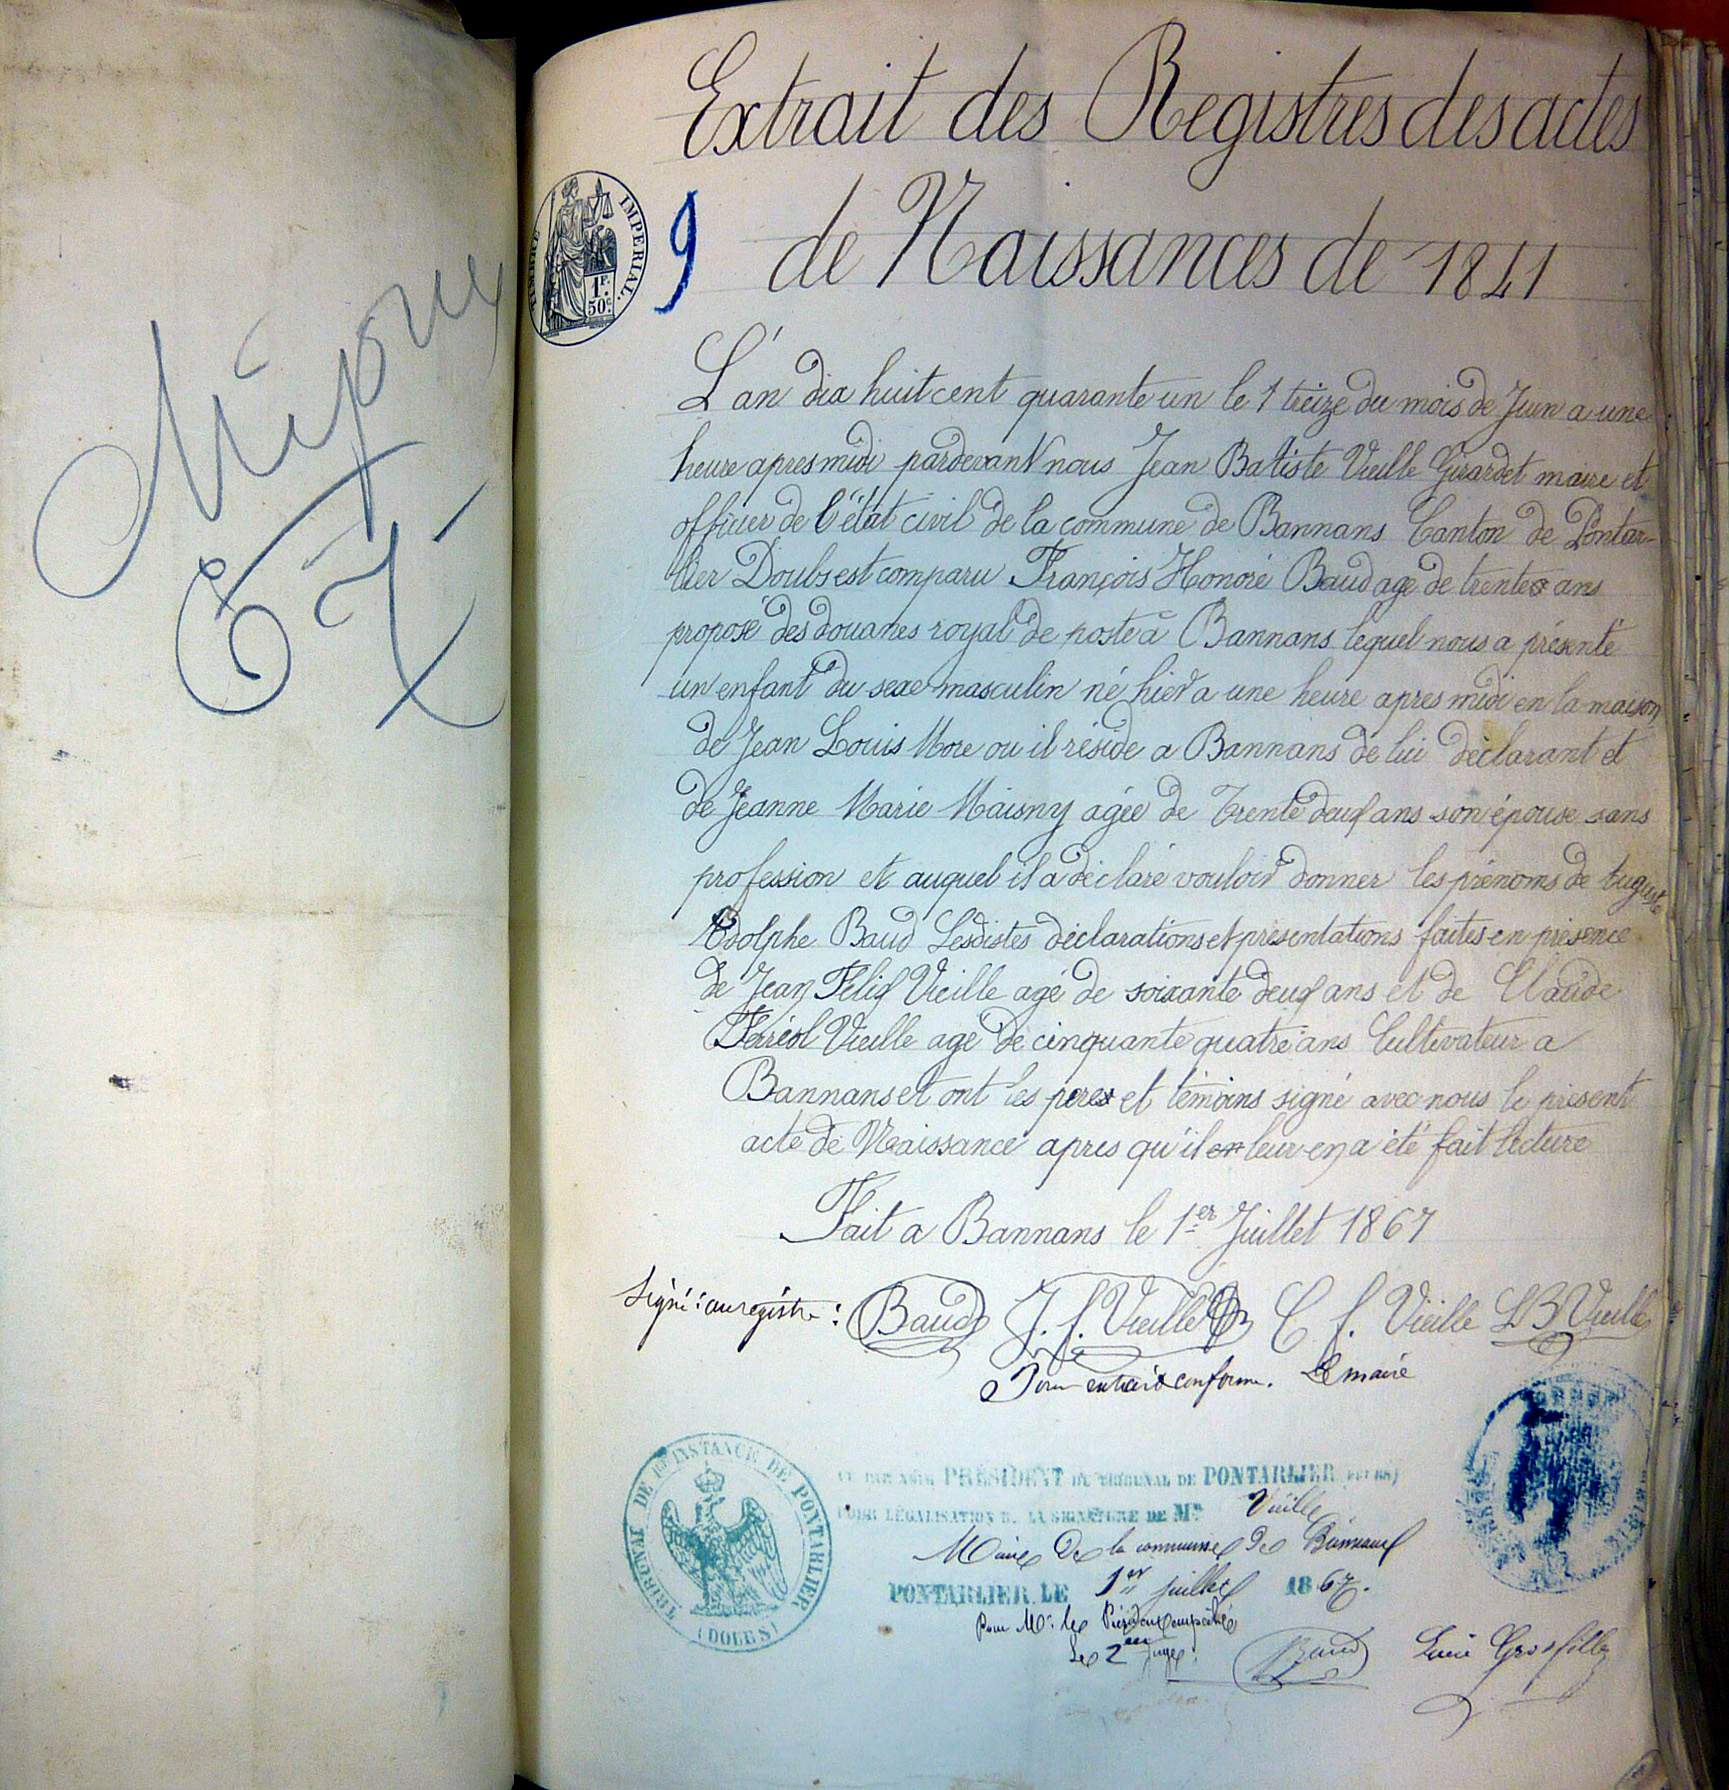 Extrait des Registres des actes
de Naissances de 1841
TIMBRE IMPERIAL.
1F.
50c.
9
67
L'an dix huit cent quarante un le 1 treize du mois de Juin a une
heure apres midi pardevant nous Jean Batiste Vieille Girardet maire et
officier de l'état civil de la commune de Bannans Canton de Pontar-
lier Doubs est comparu François Honoré Baud age de trente ans
proposé des douanes royal de poste à Bannans lequel nous a présenté
un enfant du sexe masculin né hier a une heure apres midi en la maison
de Jean Louis More ou il réside a Bannans de lui déclarant et
de Jeanne Marie Maisny agée de Trente deux ans son épouse sans
profession et auquel il a déclaré vouloir donner les prénoms de Auguste
Adolphe Baud Lesdistes déclarations et présentations faites en présence
de Jean Félix Vieille agé de soixante deux ans et de Claude
Ferréol Vieille age de cinquante quatre ans Cultivateur a
Bannans et ont les peres et témoins signé avec nous le présent
acte de Naissance apres qu'il en leur en a été fait lecture
Fait a Bannans le 1er Juillet 1867
Signé: au registre: Baud J. f. Vieille C f. Vieille Vieille
Pour extrait conforme. Le maire
TRIBUNAL DE 1re INSTANCE DE PONTARLIER
(DOUBS)
PRÉSIDENT DU TRIBUNAL DE PONTARLIER (DOUBS)
POUR LÉGALISATION DE LA SIGNATURE DE Mr Vieille
Maire de la commune de Bannans
PONTARLIER, LE 1er juillet 1867.
Pour Mr. le Président empêché
Le 2me Juge:
Baud